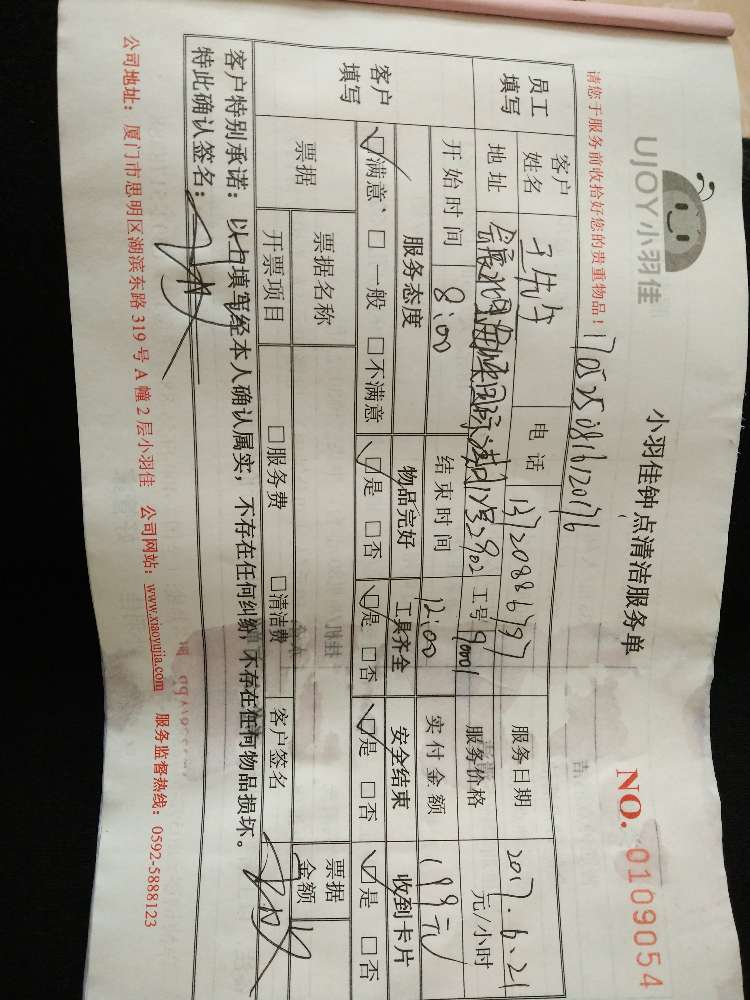 UJOY小羽佳
小羽佳钟点清洁服务单
NO. 0109054
请您于服务前收拾好您的贵重物品!
员工填写 客户姓名 电话 服务日期 2017.6.21
地址 工号 90001 服务价格 元/小时
开始时间 8:00 结束时间 12:00 实付金额 199元
客户填写 服务态度 物品完好 工具齐全 安全结束 收到卡片
☑满意 □一般 □不满意 ☑是 □否 ☑是 □否 ☑是 □否 ☑是 □否
票据 票据名称 票据金额
开票项目 □服务费 □清洁费 客户签名
客户特别承诺:以上填写经本人确认属实,不存在任何纠纷,不存在任何物品损坏。
特此确认签名:
公司地址:厦门市思明区湖滨东路 319 号 A 幢 2 层小羽佳 公司网站:www.xiaoyujia.com 服务监督热线:0592-5888123